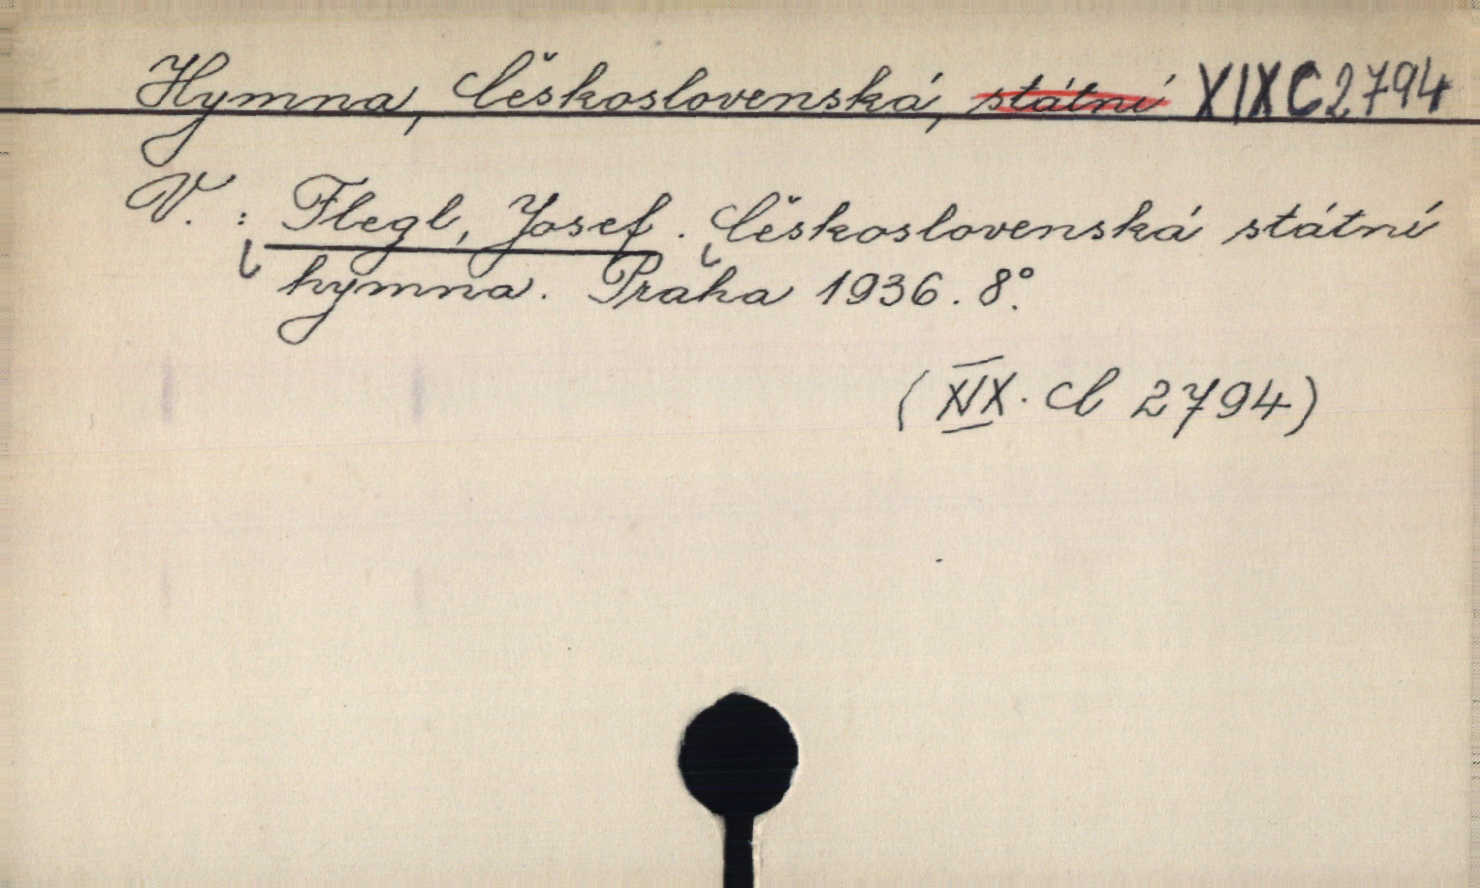 Hymna, Československá, státní XIXC2794
V.: Flegl, Josef. Československá státní
hymna. Praha 1936. 8°.
(XIX. C 2794)